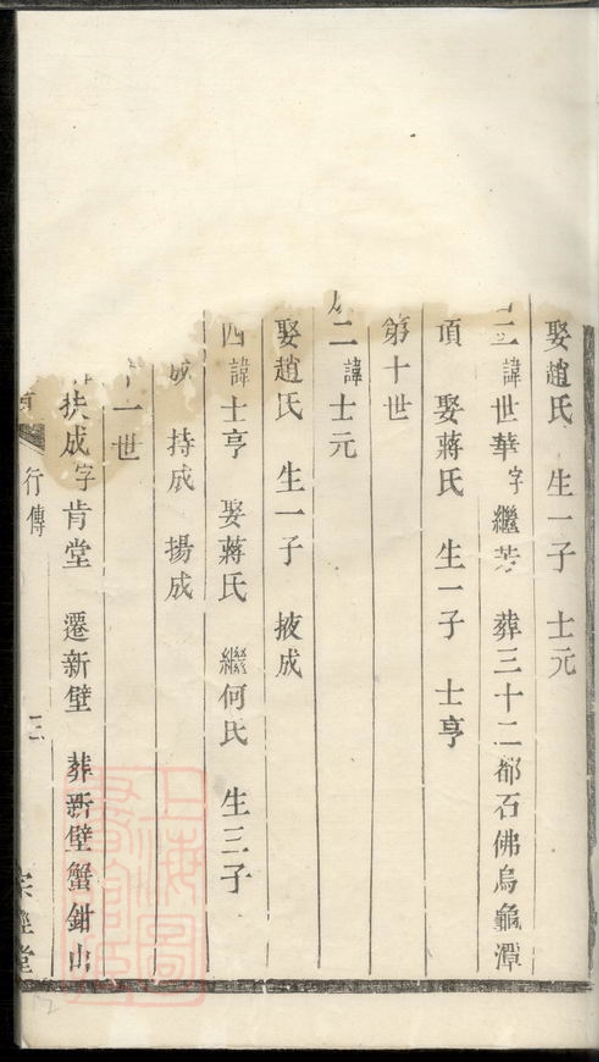 娶趙氏 生一子 士元
三諱世華字繼芳 葬三十二都石佛烏龜潭
項 娶蔣氏 生一子 士亨
第十世
二諱士元
娶趙氏 生一子 掖成
四諱士亨 娶蔣氏 繼何氏 生三子
成 持成 揚成
十一世
扶成字肯堂 遷新壁 葬新壁蟹鉗山
行傳 三
上海圖書館藏